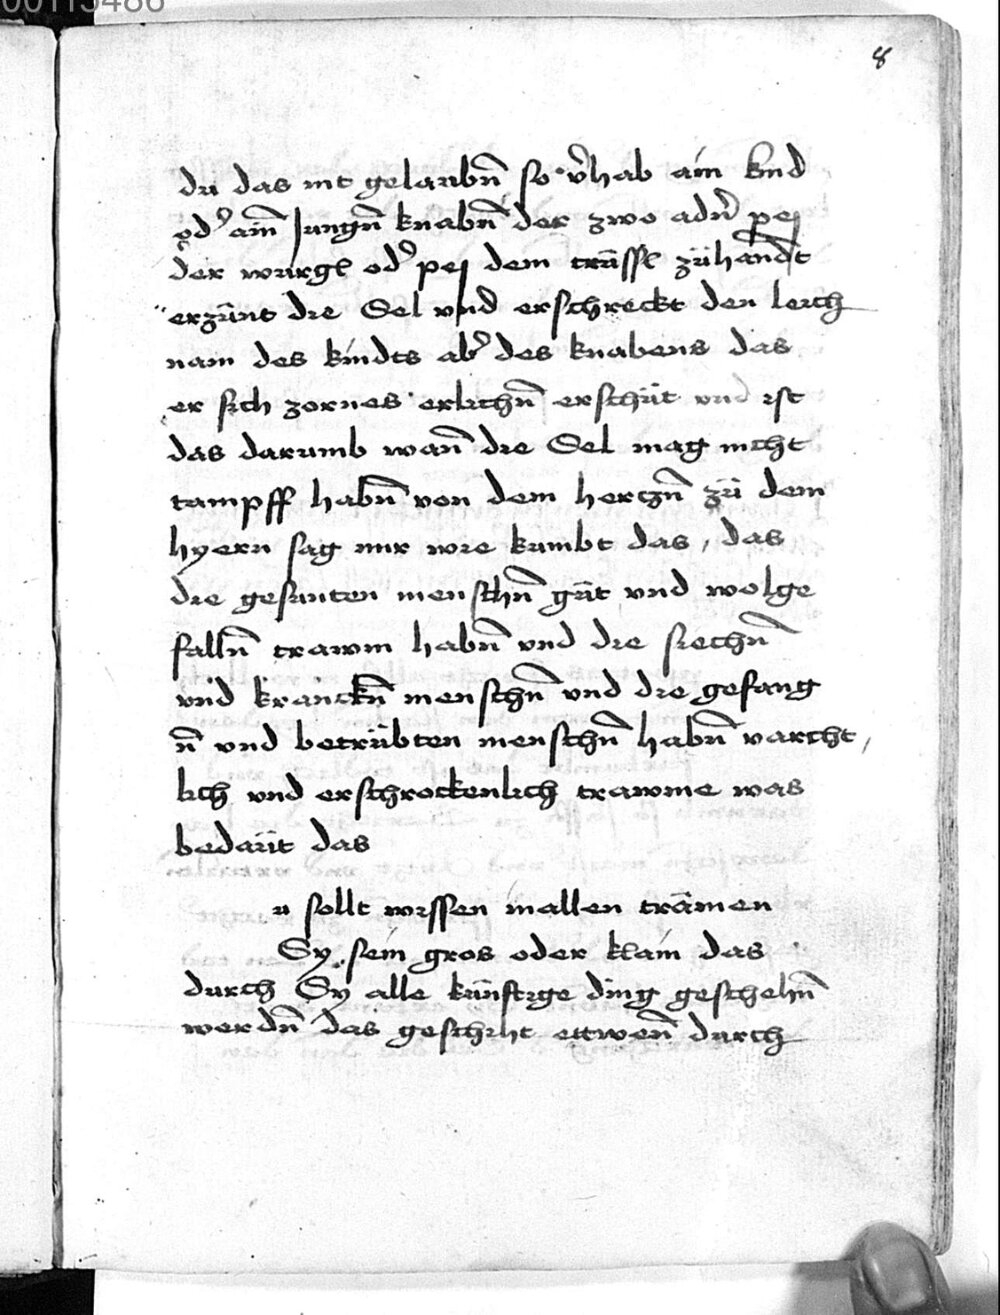 00115486
8
du das nit gelaubn̄ so v̓hab ain kind
od̓ aim̄ Jungn̄ knabn̄ der zwo adn̓ pej
der wurgl od̓ pej dem trüssl zühandt
erzürnt die Sel vnd erschreckt den leich
nam des kindts ab̓ des knabens das
er sich zornes erlichn̄ erschüt vnd ist
das darumb wan̄ die Sel mag nicht
tampff habn̄ von dem herczn̄ zü dem
hyern sag mir wie kumbt das / das
die gesunten menschn̄ güt vnd wolge
falln̄ trawm habn̄ vnd die siechn̄
vnd kranckn̄ menschn̄ vnd die gefang
n̄ vnd betrübten menschn̄ habn̄ varcht /
lich vnd erschrockenlich trawme was
bedaüt das
u sollt wissen in allen trämen
Sy sein gros oder klain das
durch Sy alle künftige ding geschehn̄
werdn̄ das geschiht ettwen̄ durch